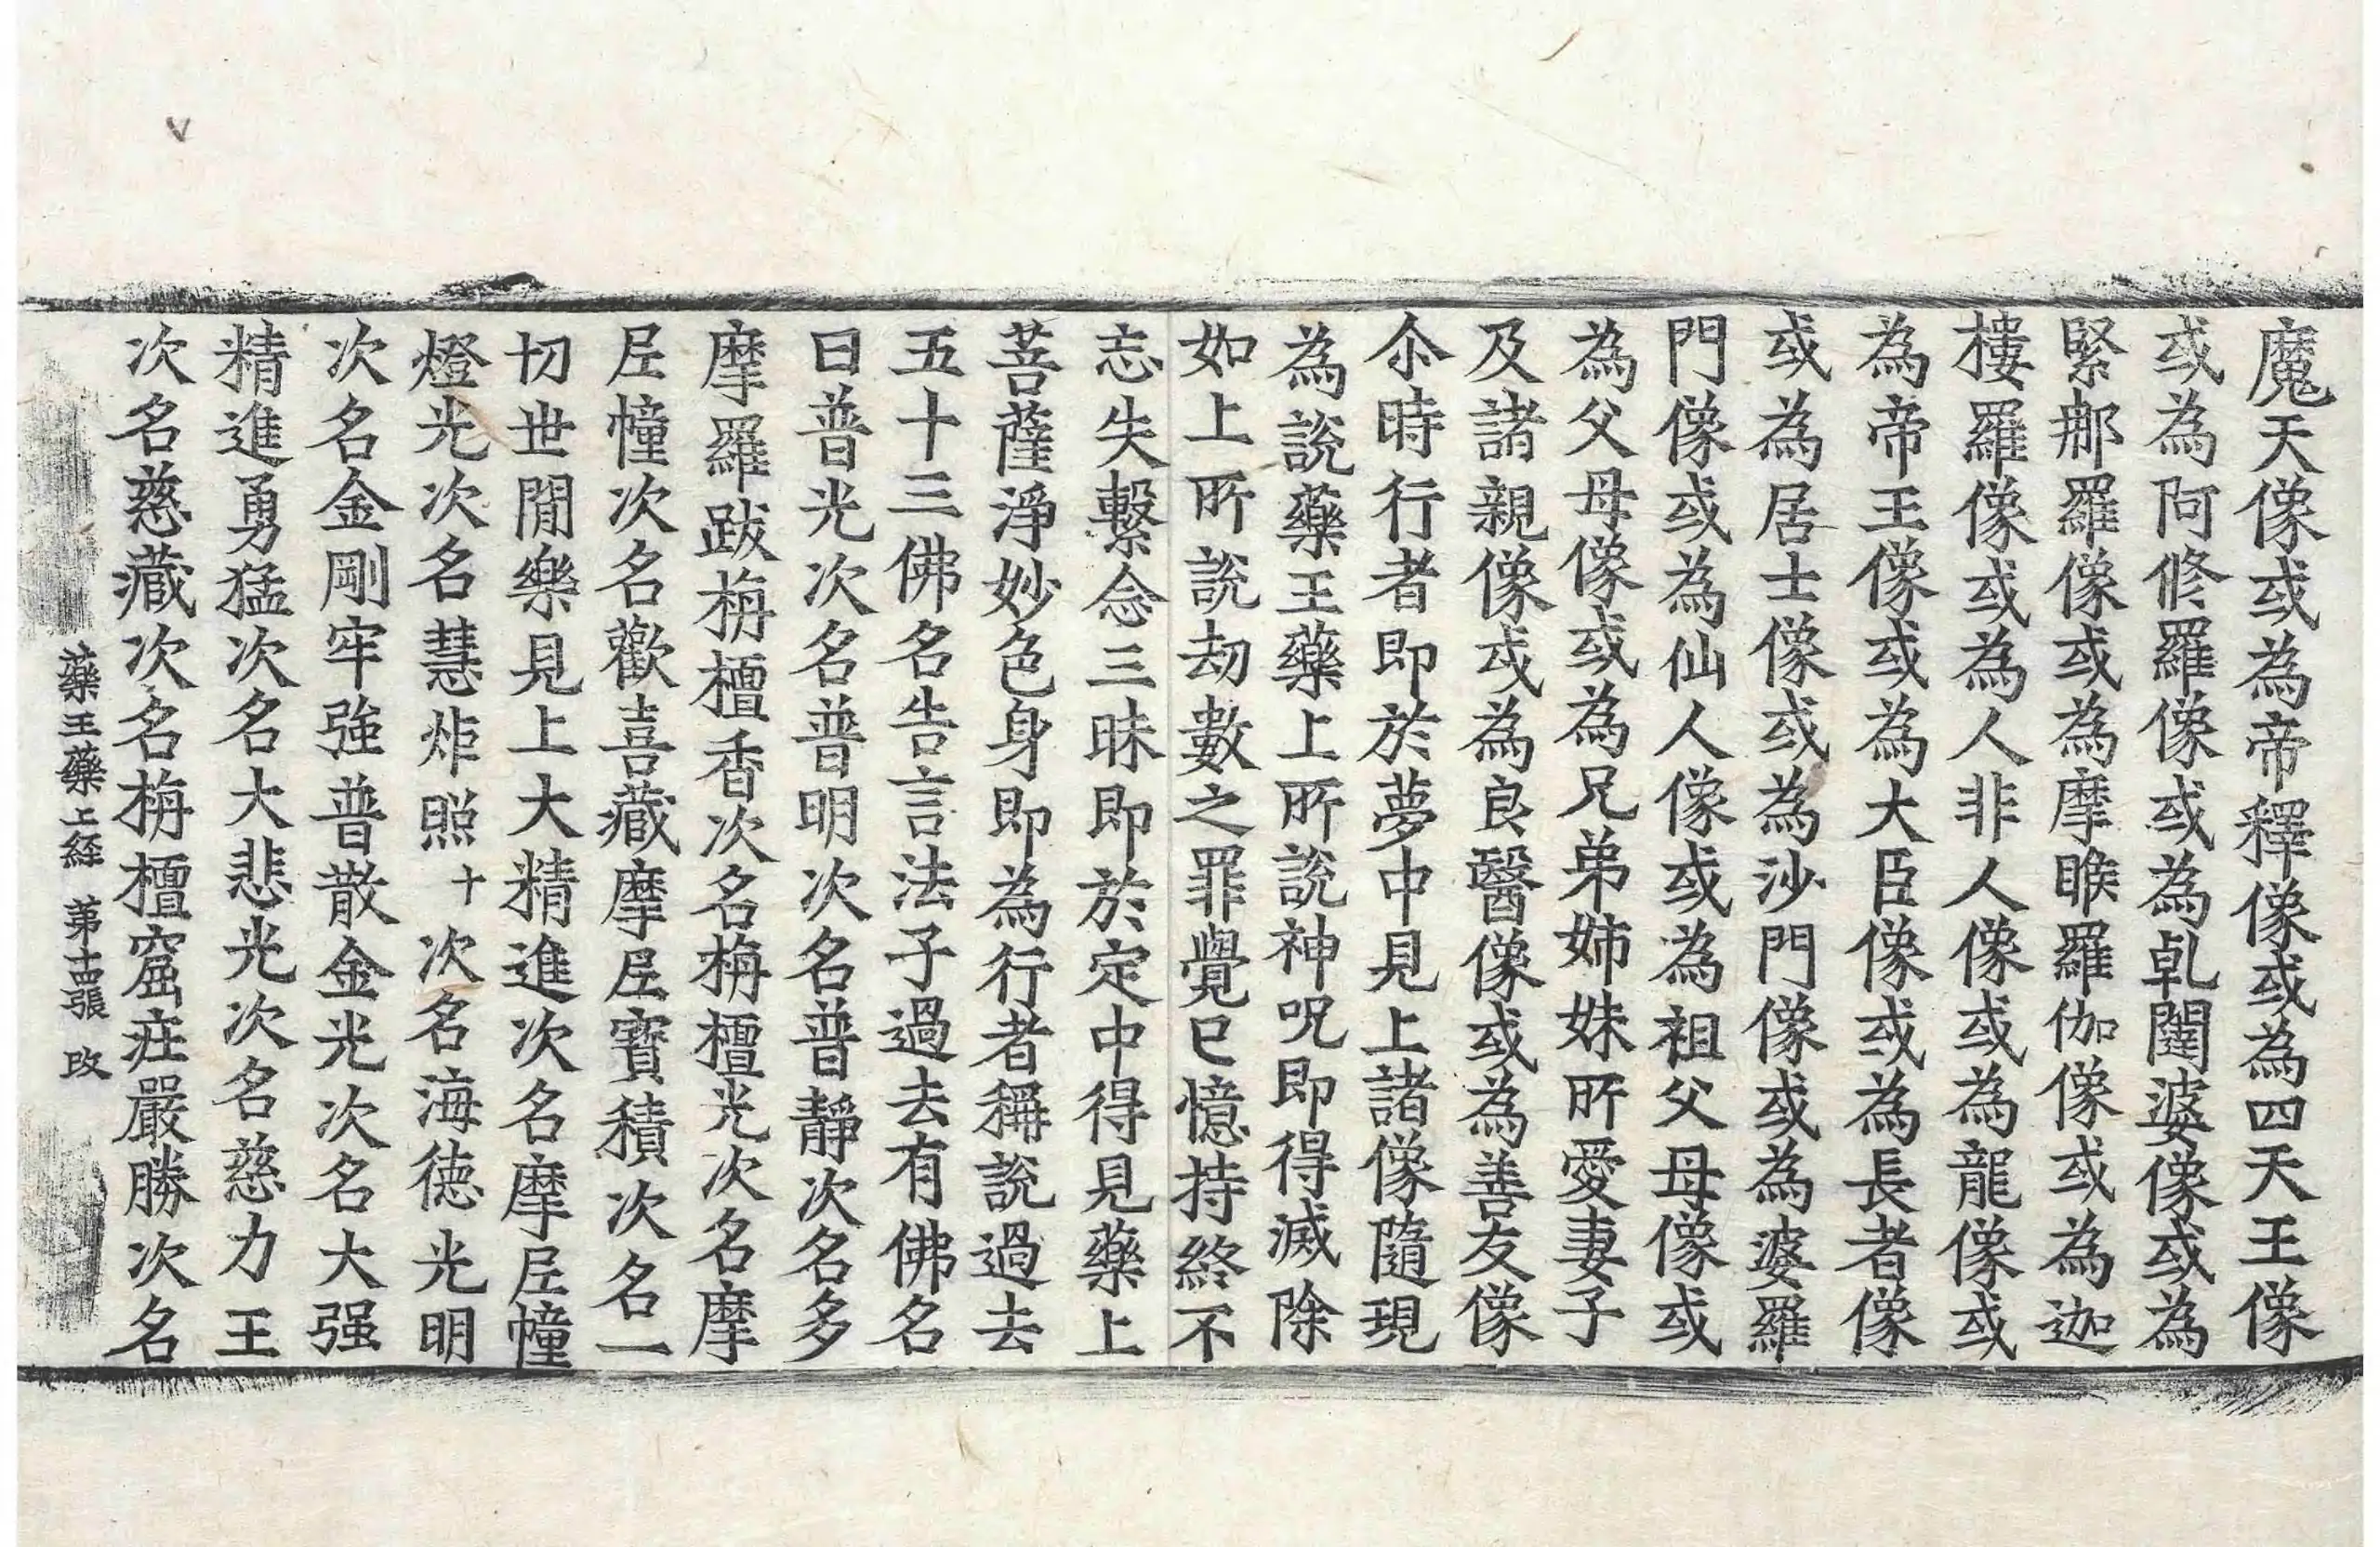 魔天像或為帝釋像或為四天王像
或為阿修羅像或為乹闥婆像或為
緊那羅像或為摩睺羅伽像或為迦
樓羅像或為人非人像或為龍像或
為帝王像或為大臣像或為長者像
或為居士像或為沙門像或為婆羅
門像或為仙人像或為祖父母像或
為父母像或為兄弟姉妹所愛妻子
及諸親像或為良醫像或為善友像
尒時行者即於夢中見上諸像隨現
為說藥王藥上所說神呪即得滅除
如上所說劫數之罪覺已憶持終不
忘失繫念三昧即於定中得見藥上
菩薩淨妙色身即為行者稱說過去
五十三佛名告言法子過去有佛名
曰普光次名普明次名普靜次名多
摩羅跋栴檀香次名栴檀光次名摩
尼幢次名歡喜藏摩尼寶積次名一
切世閒樂見上大精進次名摩尼幢
燈光次名慧炬照十次名海德光明
次名金剛牢強普散金光次名大强
精進勇猛次名大悲光次名慈力王
次名慈藏次名栴檀窟莊嚴勝次名
藥王藥上経 苐十四張 改